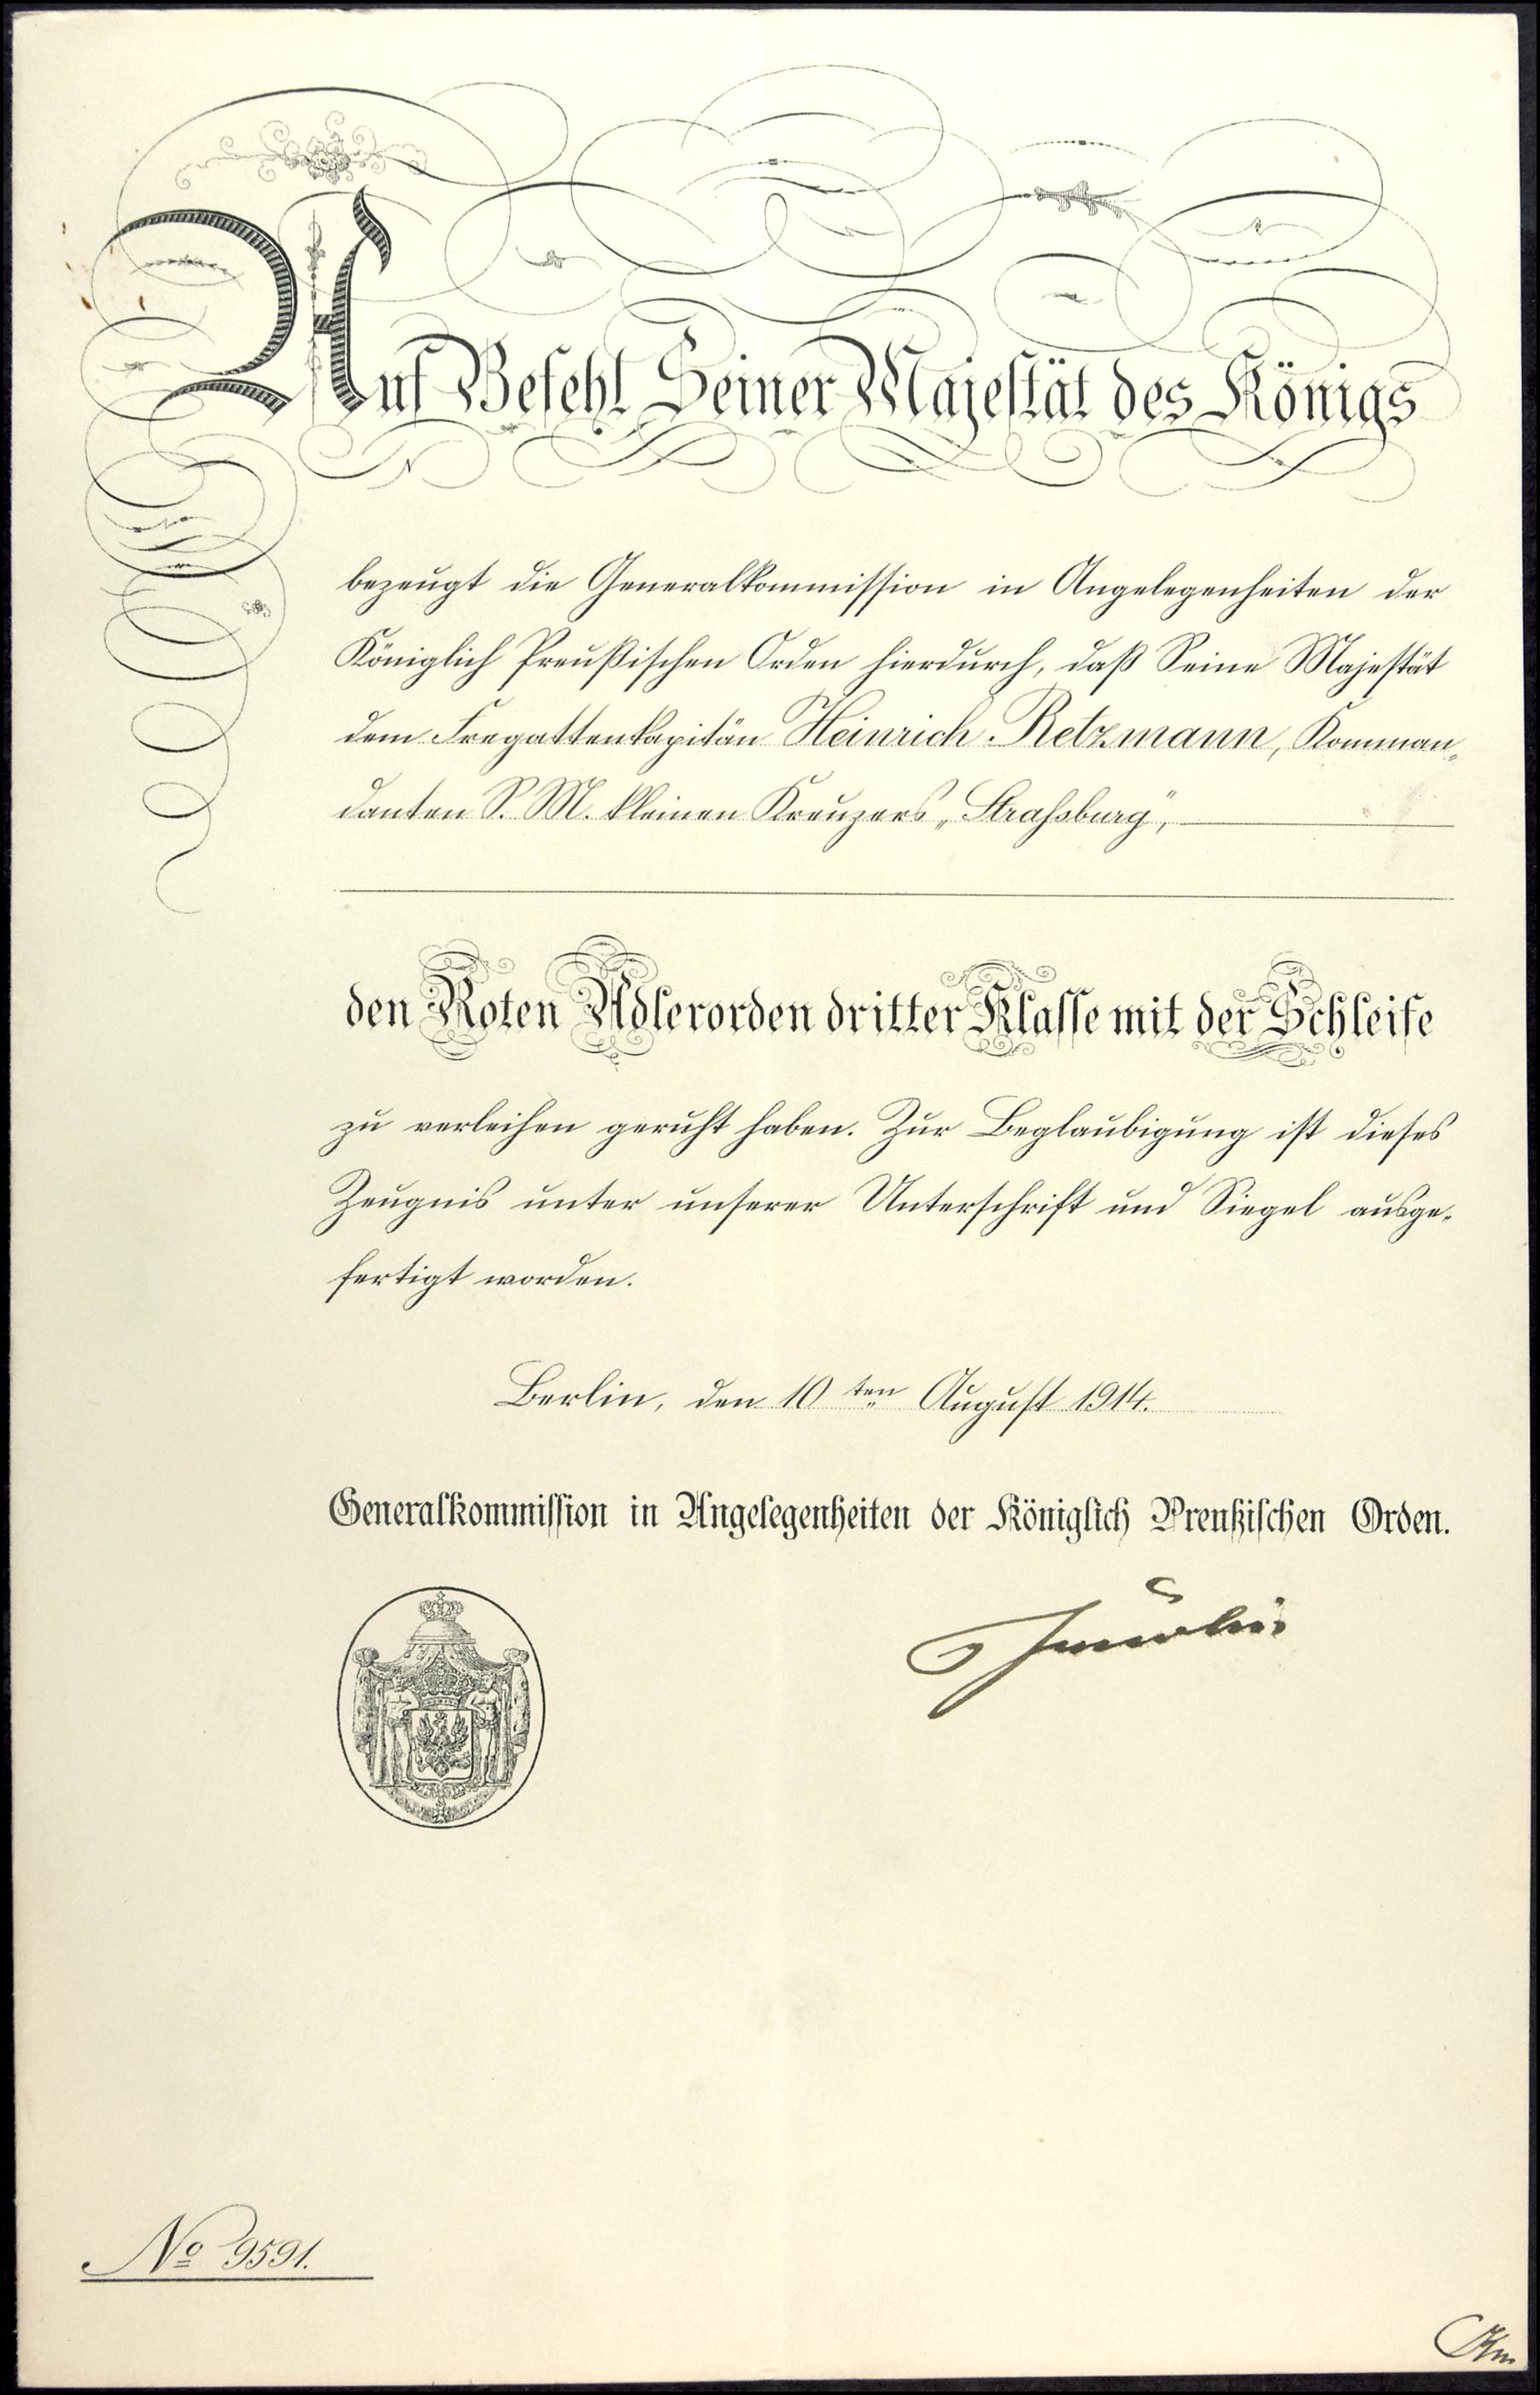 Auf Befehl Seiner Majestät des Königs
bezeugt die Generalkommission in Angelegenheiten der
Königlich Preußischen Orden hierdurch, daß Seine Majestät
dem Fregattenkapitän Heinrich Retzmann, Komman„
danten S. M. kleinen Kreuzers „Straßsburg",
den Roten Adlerorden dritter Klasse mit der Schleife
zu verleihen geruht haben. Zur Beglaubigung ist dieses
Zeugnis unter unserer Unterschrift und Siegel ausge„
fertigt worden.
Berlin, den 10ten August 1914.
Generalkommission in Angelegenheiten der Königlich Preußischen Orden.
No 9591.